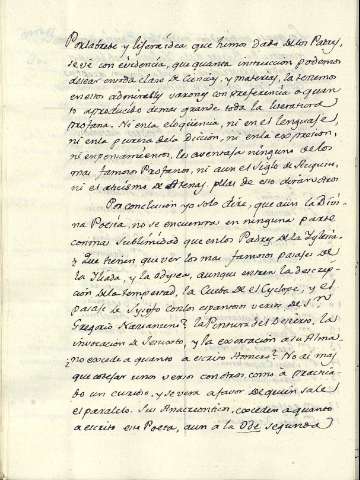 Por la breve y ligera idea que hemos dado de los Padres,
se vé con evidencia, que quanta instruccion podemos
desear en toda clase de Ciencias, y materias, la tenemos
en estos admirables varones con preferencia a quan
to a producido de mas grande toda la literatura
profana. Ni en la eloqüencia, ni en el lenguaje,
ni en la pureza de la Diccion, ni en la expresion,
ni en pensamientos, les aventaja ninguno de los
mas famosos Profanos, ni aun el Siglo de
ni el aticismo de Athenas, pues de eso
Por conclusion yo solo diré, que aun la Divi
na Poesia, no se encuentra en ninguna parte
con mas sublimidad que en los Padres de la Yglesia.
Y que tienen que ver los mas famosos pasajes de
la Iliada, y la Odysea, aunque entren la descrip
cion de la tempestad, la Cueva del Cyclope, y el
pasaje de Sysifo con los espantosos versos de Sn
Gregorio Nazianceno? la Pintura del Desierto, la
invocacion de y la exortacion a su Alma
no excede a quanto a escrito Homero? No ai mas
que cotejar unos versos con otros, como à practica
do un curioso, y se verá a favor de quien sale
el paralelo. Sus Anacreonticas, exceden a quanto
a escrito este Poeta, aun a la Ode segunda